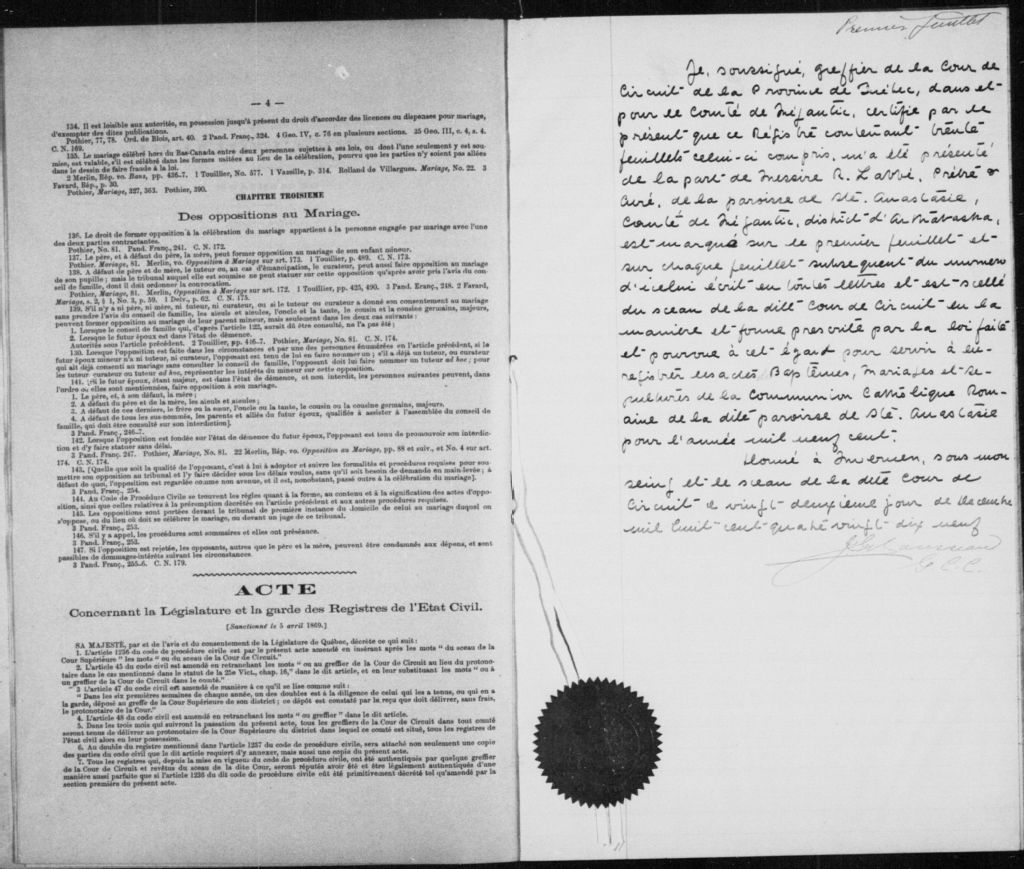 — 4 —
134. Il est loisible aux autorités, en possession jusqu'à présent du droit d'accorder des licences ou dispenses pour mariage,
d'exempter des dites publications.
Pothier, 77, 78. Ord. de Blois, art. 40. 2 Pand. Franç., 324. 4 Geo. IV, c. 76 en plusieurs sections. 25 Geo. III, c. 4, s. 4.
C. N. 169.
135. Le mariage célébré hors du Bas-Canada entre deux personnes sujettes à ses lois, ou dont l'une seulement y est sou-
mise, est valable, s'il est célébré dans les formes usitées au lieu de la célébration, pourvu que les parties n'y soient pas allées
dans le dessein de faire fraude à la loi.
2 Merlin, Rép. vo. Bans, pp. 436-7. 1 Touillier, No. 577. 1 Vazeille, p. 314. Rolland de Villargues. Mariage, No. 22. 3
Favard, Rép., p. 30.
Pothier, Mariage, 327, 363. Pothier, 390.
CHAPITRE TROISIEME
Des oppositions au Mariage.
136. Le droit de former opposition à la célébration du mariage appartient à la personne engagée par mariage avec l'une
des deux parties contractantes.
Pothier, No. 81. Pand. Franç., 241. C. N. 172.
137. Le père, et à défaut du père, la mère, peut former opposition au mariage de son enfant mineur.
Pothier, Mariage, 81. Merlin, vo. Opposition à Mariage sur art. 173. 1 Touillier, p. 489. C. N. 173.
138. A défaut de père et de mère, le tuteur ou, au cas d'émancipation, le curateur, peut aussi faire opposition au mariage
de son pupille; mais le tribunal auquel elle est soumise ne peut statuer sur cette opposition qu'après avoir pris l'avis du con-
seil de famille, dont il doit ordonner la convocation.
Pothier, Mariage, 81. Merlin, Opposition à Mariage sur art. 172. 1 Touillier, pp. 425, 490. 3 Pand. Franç., 248. 2 Favard,
Mariage, s. 2, § 1, No. 3, p. 59. 1 Delv., p. 62. C. N. 175.
139. S'il n'y a ni père, ni mère, ni tuteur, ni curateur, ou si le tuteur ou curateur a donné son consentement au mariage
sans prendre l'avis du conseil de famille, les aïeuls et aïeules, l'oncle et la tante, le cousin et la cousine germains, majeurs,
peuvent former opposition au mariage de leur parent mineur, mais seulement dans les deux cas suivants :
1. Lorsque le conseil de famille qui, d'après l'article 122, aurait dû être consulté, ne l'a pas été ;
2. Lorsque le futur époux est dans l'état de démence.
Autorités sous l'article précédent. 2 Touillier, pp. 416-7. Pothier, Mariage, No. 81. C. N. 174.
130. Lorsque l'opposition est faite dans les circonstances et par une des personnes énumérées en l'article précédent, si le
futur époux mineur n'a ni tuteur, ni curateur, l'opposant est tenu de lui en faire nommer un ; s'il a déjà un tuteur, ou curateur
qui ait déjà consenti au mariage sans consulter le conseil de famille, l'opposant doit lui faire nommer un tuteur ad hoc ; pour
les tuteur curateur ou tuteur ad hoc, représenter les intérêts du mineur sur cette opposition.
141. [Si le futur époux, étant majeur, est dans l'état de démence, et non interdit, les personnes suivantes peuvent, dans
l'ordre où elles sont mentionnées, faire opposition à son mariage.
1. Le père, et, à son défaut, la mère ;
2. A défaut du père et de la mère, les aïeuls et aïeules ;
3. A défaut de ces derniers, le frère ou la sœur, l'oncle ou la tante, le cousin ou la cousine germains, majeurs.
4. A défaut de tous les sus-nommés, les parents et alliés du futur époux, qualifiés à assister à l'assemblée du conseil de
famille, qui doit être consulté sur son interdiction].
3 Pand. Franç., 246-7.
142. Lorsque l'opposition est fondée sur l'état de démence du futur époux, l'opposant est tenu de promouvoir son interdic-
tion et d'y faire statuer sans délai.
3 Pand. Franç. 247. Pothier, Mariage, No. 81. 22 Merlin, Rép. vo. Opposition au Mariage, pp. 88 et suiv., et No. 4 sur art.
174. C. N. 174.
143. [Quelle que soit la qualité de l'opposant, c'est à lui à adopter et suivre les formalités et procédures requises pour sou-
mettre son opposition au tribunal et l'y faire décider sous les délais voulus, sans qu'il soit besoin de demande en main-levée ; à
défaut de quoi, l'opposition est regardée comme non avenue, et il est, nonobstant, passé outre à la célébration du mariage].
3 Pand. Franç., 254.
144. Au Code de Procédure Civile se trouvent les règles quant à la forme, au contenu et à la signification des actes d'oppo-
sition, ainsi que celles relatives à la péremption décrétée en l'article précédent et aux autres procédures requises.
145. Les oppositions sont portées devant le tribunal de première instance du domicile de celui au mariage duquel on
s'oppose, ou du lieu où doit se célébrer le mariage, ou devant un juge de ce tribunal.
3 Pand. Franç., 253.
146. S'il y a appel, les procédures sont sommaires et elles ont préséance.
3 Pand. Franç., 253.
147. Si l'opposition est rejetée, les opposants, autres que le père et la mère, peuvent être condamnés aux dépens, et sont
passibles de dommages-intérêts suivant les circonstances.
3 Pand. Franç., 255-6. C. N. 179.
ACTE
Concernant la Législature et la garde des Registres de l'Etat Civil.
[Sanctionné le 5 avril 1869.]
SA MAJESTÉ, par et de l'avis et du consentement de la Législature de Québec, décrète ce qui suit :
1. L'article 1236 du code de procédure civile est par le présent acte amendé en insérant après les mots " du sceau de la
Cour Supérieure " les mots " ou du sceau de la Cour de Circuit."
2. L'article 45 du code civil est amendé en retranchant les mots " ou au greffier de la Cour de Circuit au lieu du protono-
taire dans le cas mentionné dans le statut de la 25e Vict., chap. 16," dans le dit article, et en leur substituant les mots " ou à
un greffier de la Cour de Circuit dans le comté."
3 L'article 47 du code civil est amendé de manière à ce qu'il se lise comme suit :
" Dans les six premières semaines de chaque année, un des doubles est à la diligence de celui qui les a tenus, ou qui en a
la garde, déposé au greffe de la Cour Supérieure de son district ; ce dépôt est constaté par le reçu que doit délivrer, sans frais,
le protonotaire de la Cour."
4. L'article 48 du code civil est amendé en retranchant les mots " ou greffier " dans le dit article.
5. Dans les trois mois qui suivront la passation du présent acte, tous les greffiers de la Cour de Circuit dans tout comté
seront tenus de délivrer au protonotaire de la Cour Supérieure du district dans lequel ce comté est situé, tous les registres de
l'état civil alors en leur possession.
6. Au double du registre mentionné dans l'article 1237 du code de procédure civile, sera attaché non seulement une copie
des parties du code civil que le dit article requiert d'y annexer, mais aussi une copie du présent acte.
7. Tous les registres qui, depuis la mise en vigueur du code de procédure civile, ont été authentiqués par quelque greffier
de la Cour de Circuit et revêtus du sceau de la dite Cour, seront réputés avoir été et être légalement authentiqués d'une
manière aussi parfaite que si l'article 1236 du dit code de procédure civile eût été primitivement décrété tel qu'amendé par la
section première du présent acte.
Premier feuillet
Je, soussigné, greffier de la Cour de
Circuit de la Province de Québec, dans et
pour le Comté de Mégantic, certifie par le
présent que ce Régistre contenant trente
feuillets celui-ci compris, m'a été présenté
de la part de Messire R. Labbé, Prêtre &
Curé, de la paroisse de Ste. Anastasie,
Comté de Mégantic, district d'Arthabaska,
est marqué sur le premier feuillet et
sur chaque feuillet subséquent du numéro
d'icelui écrit en toutes lettres et est scellé
du sceau de la dite Cour de Circuit en la
manière et forme prescrite par la loi faite
et pourvue à cet égard pour servir à en-
registrer les actes Baptêmes, Mariages et sé-
pultures de la Communion Catholique Rom-
aine de la dite paroisse de Ste. Anastasie
pour l'année mil neuf cent.
Donné à Inverness, sous mon
seing et le sceau de la dite Cour de
Circuit le vingt deuxième jour de décembre
mil huit cent quatre vingt dix neuf
G.C.C.